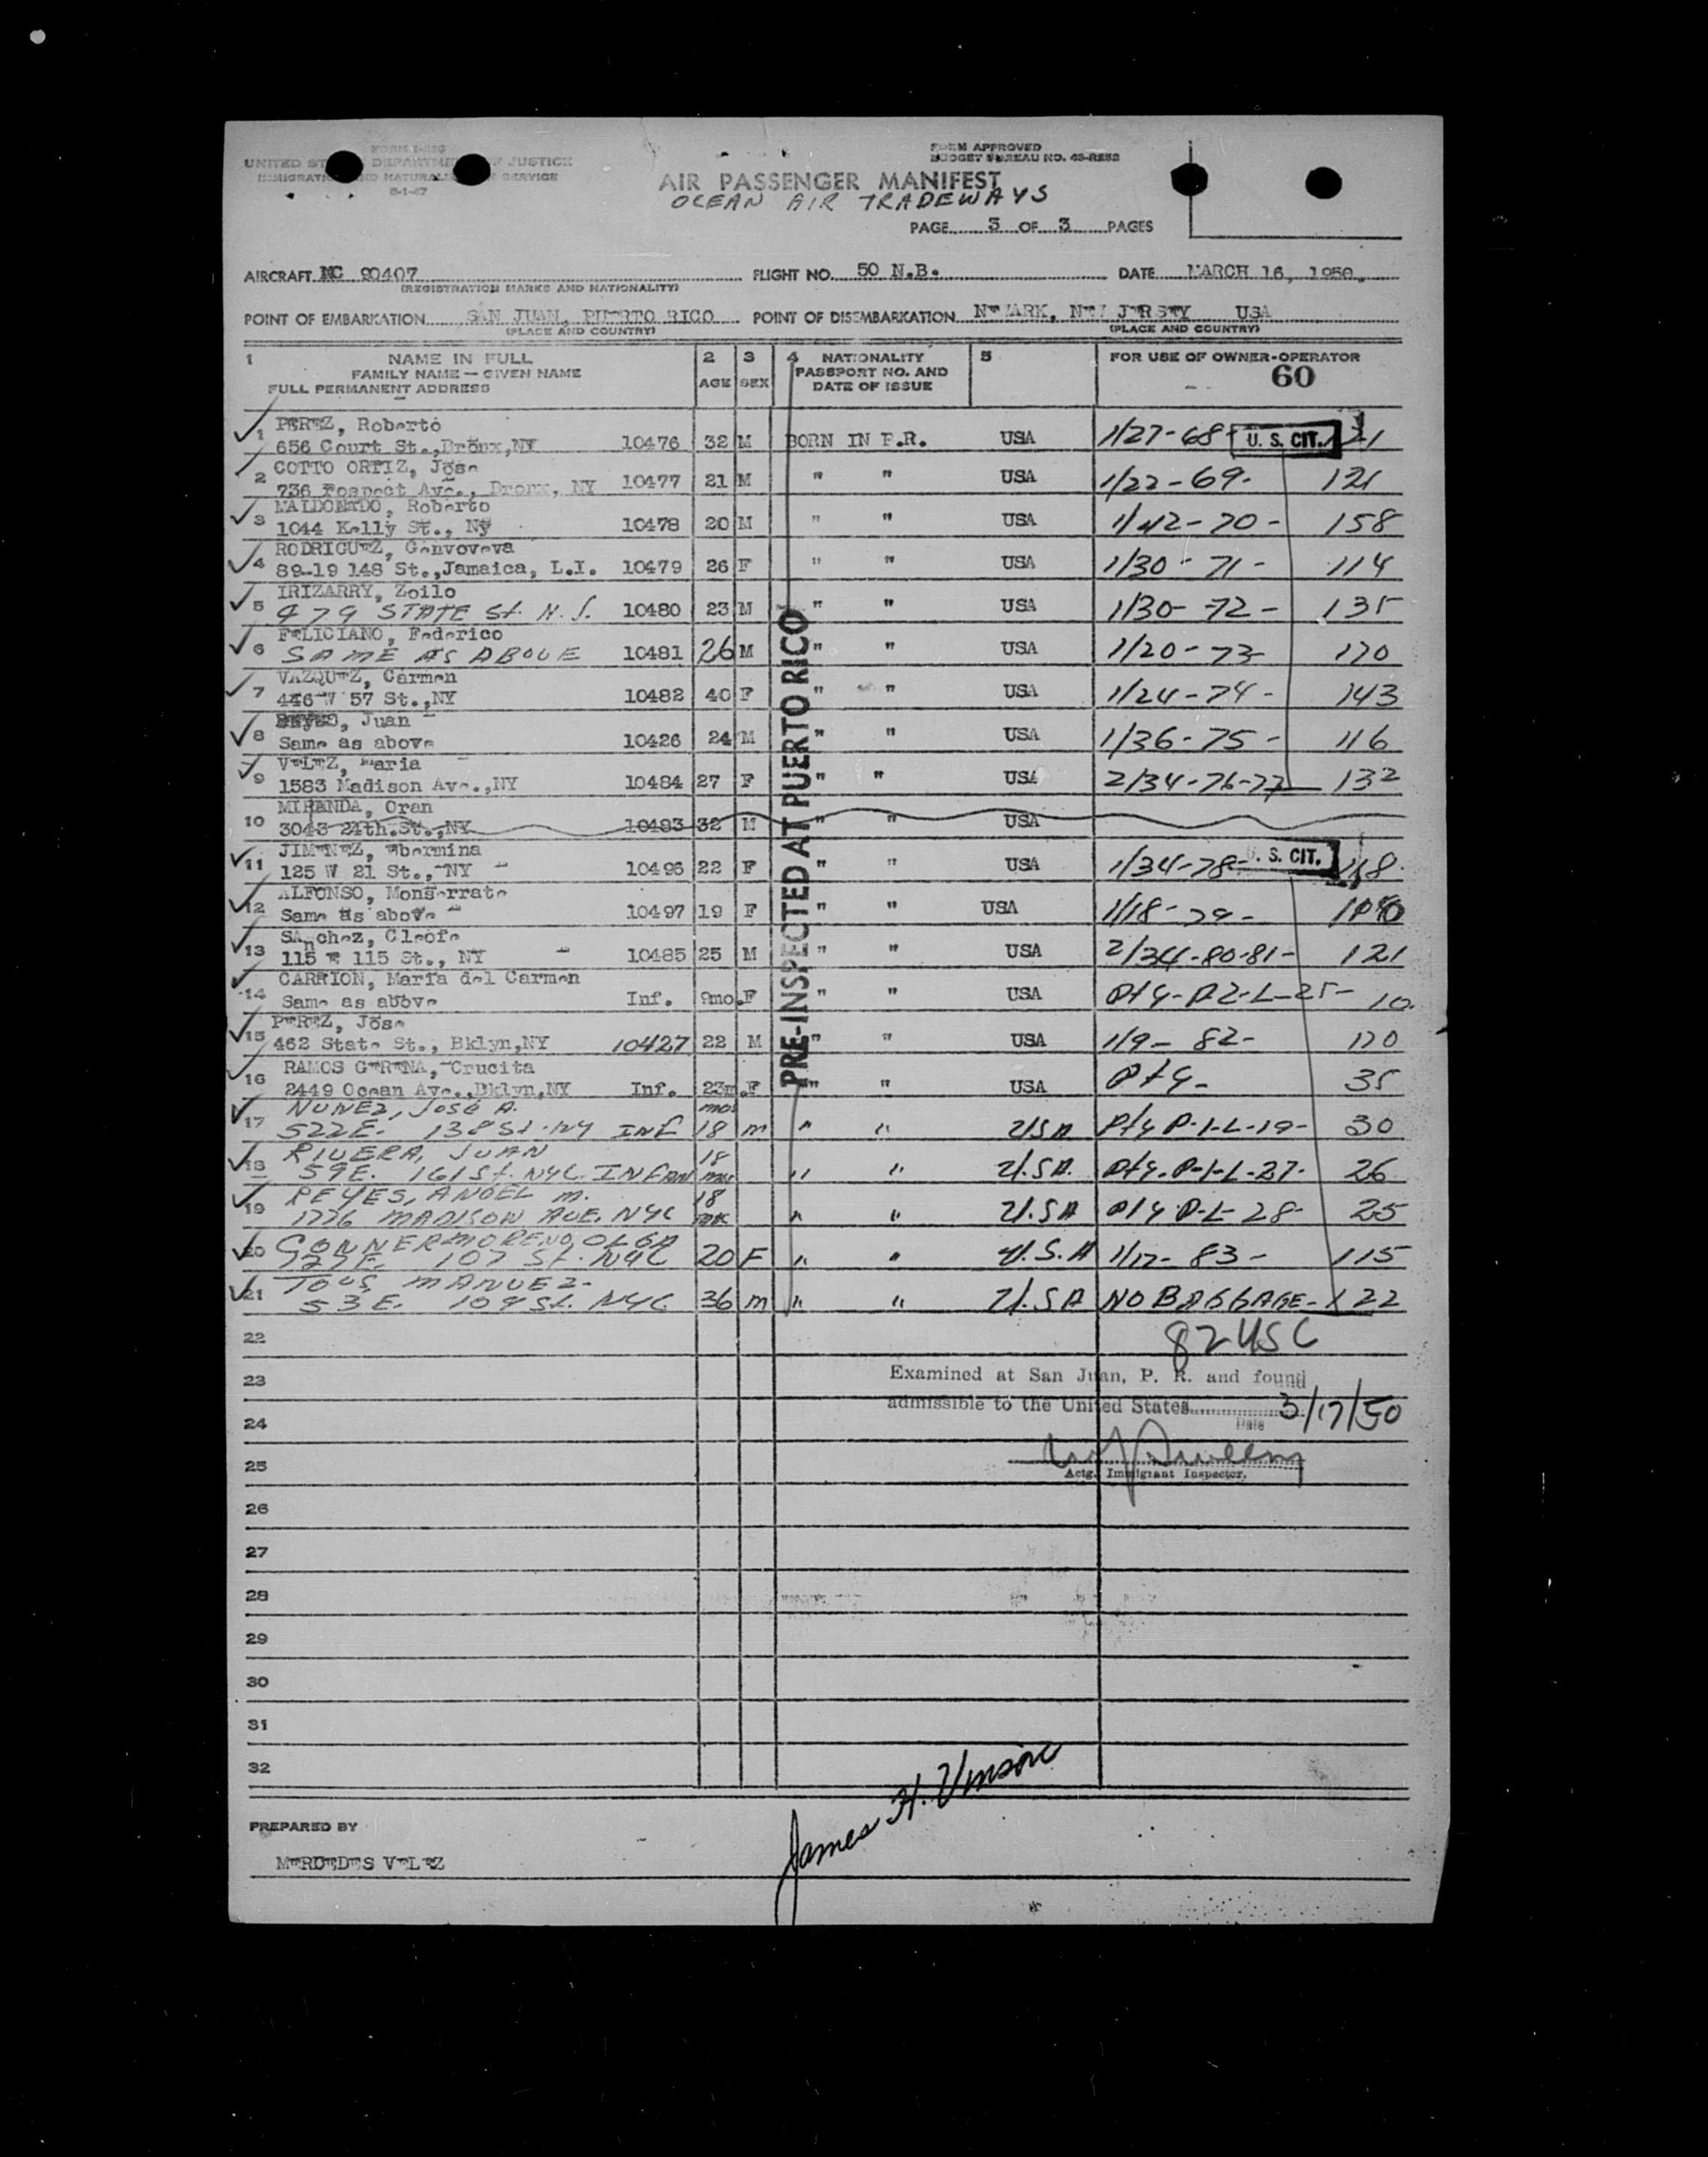 FORM I-466
UNITED ST DEPARTME F JUSTICE
IMMIGRATI ND NATURAL N SERVICE
5-1-47
FORM APPROVED
BUDGET BUREAU NO. 43-R252
AIR PASSENGER MANIFEST
OCEAN AIR TRADEWAYS
PAGE 3 OF 3 PAGES
AIRCRAFT NC 90407 FLIGHT NO. 50 N.B. DATE MARCH 16, 1950
(REGISTRATION MARKS AND NATIONALITY)
POINT OF EMBARKATION SAN JUAN, PUERTO RICO POINT OF DISEMBARKATION NEWARK, NEW JERSEY USA
(PLACE AND COUNTRY) (PLACE AND COUNTRY)
1 NAME IN FULL 2 3 4 NATIONALITY 5 FOR USE OF OWNER-OPERATOR
FAMILY NAME — GIVEN NAME AGE SEX PASSPORT NO. AND 60
FULL PERMANENT ADDRESS DATE OF ISSUE
PEREZ, Roberto
1 656 Court St., Bronx, NY 10476 32 M BORN IN P.R. USA 1/27-68- U. S. CIT. 121
COTTO ORTIZ, Jose
2 736 Pospect Ave., Bronx, NY 10477 21 M " " USA 1/22-69- 121
MALDONADO, Roberto
3 1044 Kelly St., NY 10478 20 M " " USA 1/42-70- 158
RODRIGUEZ, Genvoveva
4 89-19 148 St., Jamaica, L.I. 10479 26 F " " USA 1/30-71- 114
IRIZARRY, Zoilo
5 479 STATE St. N.J. 10480 23 M " " USA 1/30-72- 135
FELICIANO, Federico
6 SAME AS ABOVE 10481 26 M " " USA 1/20-73- 170
VAZQUEZ, Carmen
7 446 W 57 St., NY 10482 40 F " " USA 1/24-74- 143
REYES, Juan
8 Same as above 10426 24 M " " USA 1/36-75- 116
VELEZ, Maria
9 1583 Madison Ave., NY 10484 27 F " " USA 2/34-76-77- 132
MIRANDA, Oran
10 3043 24th. St., NY 10483 32 M " " USA
JIMENEZ, Ebermina
11 125 W 21 St., NY 10496 22 F " " USA 1/34-78- U. S. CIT. 118
ALFONSO, Monserrate
12 Same as above 10497 19 F " " USA 1/18-79-
SAnchez, Cleofe
13 115 E 115 St., NY 10485 25 M " " USA 2/34-80-81- 121
CARRION, Maria del Carmen
14 Same as above Inf. 9mo. F " " USA Pty-P2-L-25- 10.
PEREZ, Jose
15 462 State St., Bklyn, NY 10427 22 M " " USA 1/9-82- 170
RAMOS GERENA, Crucita
16 2449 Ocean Ave., Bklyn, NY Inf. 23m. F " " USA Pty- 35
NUNEZ, José A. mos
17 522 E. 138 St. NY INF 18 m " " USA Pty P-1-L-19- 30
RIVERA, JUAN 18
18 59 E. 161 St. NYC. INFAN mos " " U.S.A. Pty-P-1-L-27- 26
REYES, ANGEL m. 18
19 1776 MADISON AVE. NYC " " U.S.A Pty P-L-28- 25
MORENO, OLGA
20 107 St. NYC 20 F " " U.S.A 1/17-83- 115
TOUS, MANUEL
21 53 E. 109 St. NYC 36 m " " U.S.A NO BAGGAGE- 122
PRE-INSPECTED AT PUERTO RICO
22 82 USC
23 Examined at San Juan, P. R. and found
24 admissible to the United States 3/17/50
Date
25
Actg. Immigrant Inspector.
26
27
28
29
30
31
32
James H. Vinson
PREPARED BY
MERCEDES VELEZ